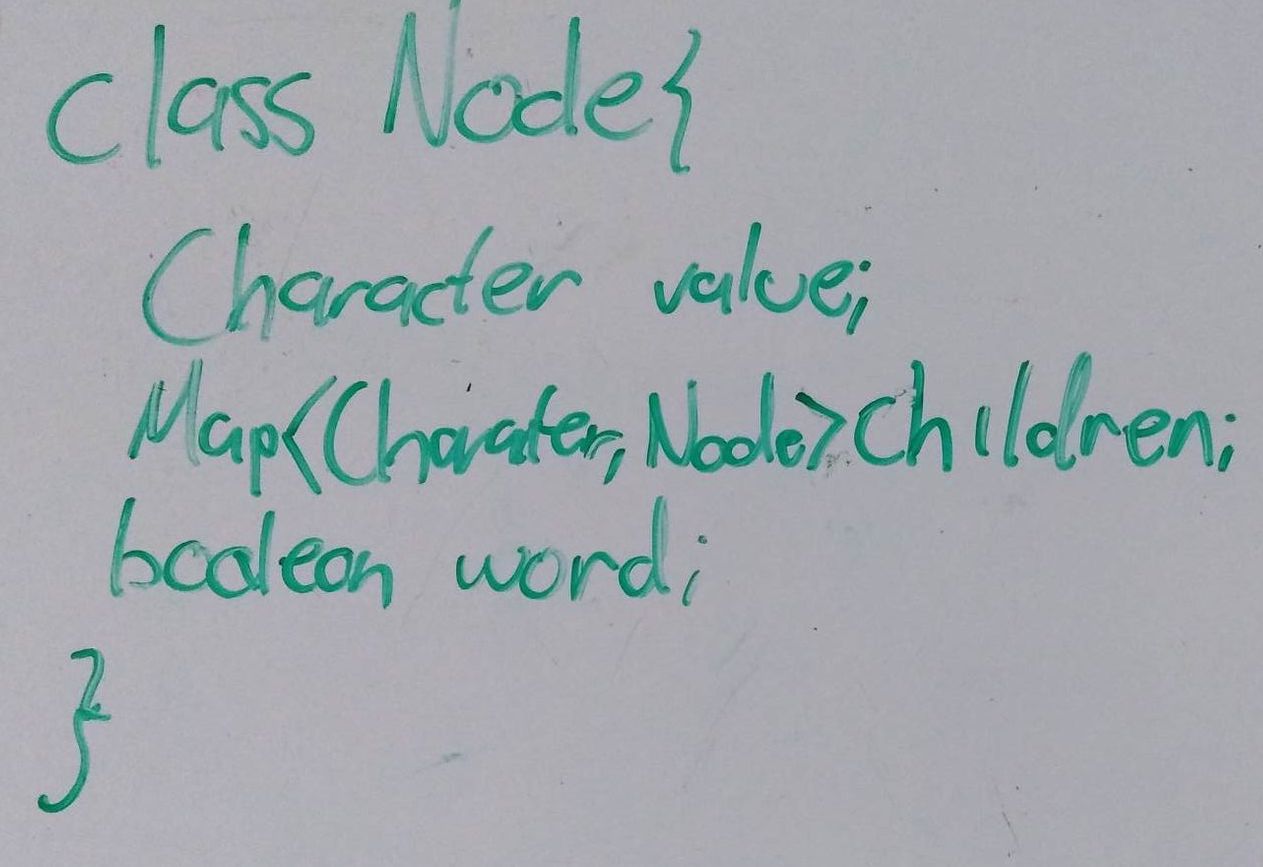 class Node{
Character value;
Map<Charater, Node> children;
boolean word;
}